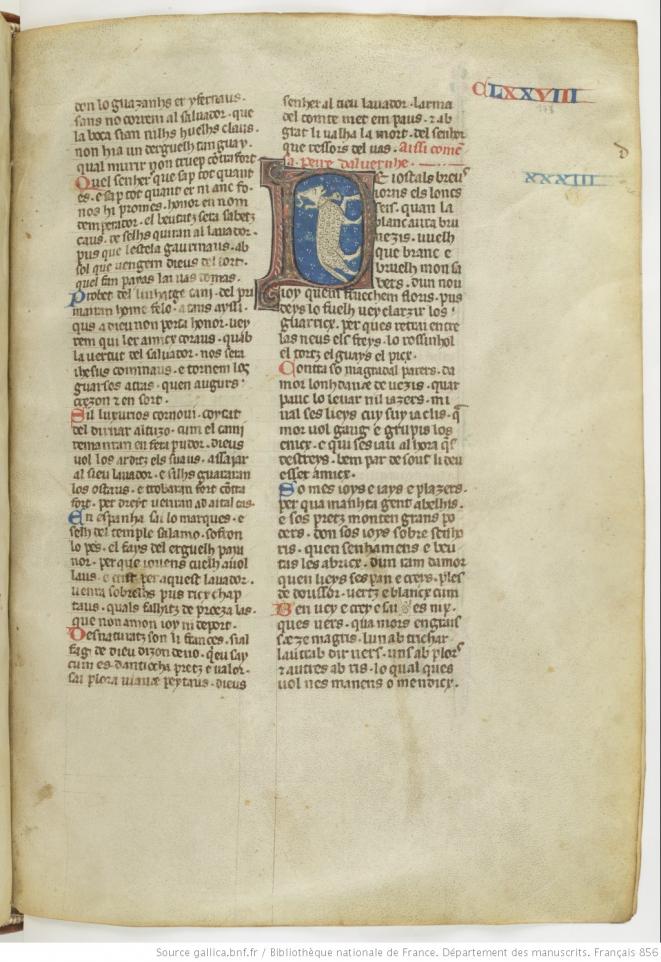 CLXXVIII
178
XXXIII
don lo guazanhs er yfernaus.
sans no correm al salvador. que
la boca stan nilhs huelhs claus.
non hia un derguelh tan guay.
qual murir non truep contra fort
Quel senher que sap tot quant
es. e sap tot quant er ni anc fo.
nos hi promes. honor en nom
demperador. el beutatz sera sabetz
caus. de selhs quiran al lavador.
pus que lestela gauzinaus. ab
sol que vengem dieus del tort.
quel fan paias lai vas domas.
Probet del linhatge caỹ. del pri
mairan home felo. a tans ayssi.
qus a dieu non porta honor. vey
rem qui ler amicx coraus. quab
la vertut del salvador. nos sera
ihesus cominaus. e tornem los
guarsos atras. quen augurs
crezon z en sort.
Sil luxurios cornovi. coytat
del dirnar
del taizo. cum el cami
remanran en fera pudor. dieus
vol los arditz els suaus. assajar
al sieu lavador. e silhs guaitaran
los ostaus. e trobaran fort contra
fort. per dreyt venran ad aital cas.
En espanha sai lo marques. e
selh del temple salamo. sofron
lo pes. el fays del erguelh payi
nor. per que iovens cuelh avol
laus. e crist per aquest lavador.
venra sobrelhs pus ricx chap
taus. quals falhitz de proeza las.
que non amon ioy ni deport.
Desnaturatz son li frances. si al
fag de dieu dizon de no. queu say
cum es. dantiocha pretz e valor.
sai plora viana e peytaus. dieus
senher al tieu lavador. larma
del comte met em paus. z ab
giat li valha la mort. del senhor
que ressors del vas. Aissi come
sa. peire dalvernhe.
De iostals breus
iorns els loncs
seis. quan la
blancaura bru
nezis. vuelh
que branc e
bruelh mon sa
bers. dun nou
ioy quem fruechem floris. pus
deys lo fuelh vey clarzir los
guarricx. per ques retrai entre
las neus els freys. lo rossinhol
el tortz el guays el picx.
Contra so magradal parers. da
mor lonhdanæ de vezis. quar
pauc lo levar nil iazers. mi
val ses lieys cuy suy aclis. q̃
mor vol gang e grupis los
enicx. e qui ses iau al hora q̃s
destreys. bem par de sout li deu
esser amicx.
So mes ioys e iays e plazers.
per qua manhta gent abelhis.
e sos pretz monten grans po
ders. don sos ioys sobre senho
ris. quen senhamens e beu
tas les abricx. dun ram damor
quen lieys ses pan e creys. ples
de doussor. vertz e blancx cum
Ben vey e crey e sai es nix.
ques vers. qua mors engrais
sæ ze magris. lun ab trichar
lautrab dir vers. uns ab plors
z autres ab ris. lo qual ques
vol nes manens o mendicx.
Source gallica.bnf.fr / Bibliothèque nationale de France. Département des manuscrits. Français 856